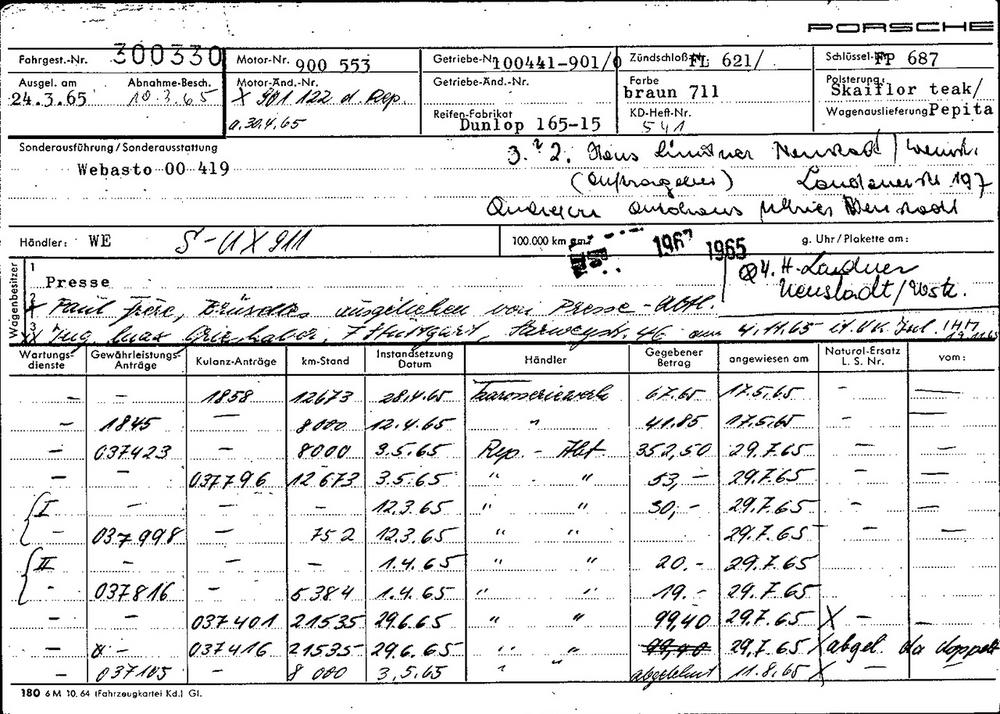 PORSCHE
Fahrgest.-Nr. 300330 Motor-Nr. 900 553 Getriebe-Nr. 100441-901/0 Zündschloß FL 621/ Schlüssel- FP 687
Ausgel. am Abnahme-Besch. Motor-Änd.-Nr. Getriebe-Änd.-Nr. Farbe Polsterung:
24.3.65 10.3.65 X 901 122 d. Rep. braun 711 Skaiflor teak/
a. 30.4.65 Reifen-Fabrikat KD-Heft-Nr. Wagenauslieferung Pepita
Dunlop 165-15 541
Sonderausführung/Sonderausstattung
Webasto 00 419 3. 2. Hans Neustadt/Weinstr.
(Auftraggeber) 197
Autohaus Neustadt
Händler: WE S-UX 911 100.000 km am: 1967 1965 g. Uhr/Plakette am:
Wagenbesitzer
1 4. H.
Presse Neustadt/Wstr.
2 Paul Frère, Brüssel, ausgeliehen von Presse-Abtl.
3 Ing. Stuttgart, 46 am 4.11.65
Wartungsdienste Gewährleistungs-Anträge Kulanz-Anträge km-Stand Instandsetzung Datum Händler Gegebener Betrag angewiesen am Natural-Ersatz L. S. Nr. vom:
– – 1858 12673 28.4.65 Karosseriewerk 67.65 17.5.65 – –
– 1845 – 8000 12.4.65 " 41.85 17.5.65 – –
– 037423 – 8000 3.5.65 Rep. - Abt. 352,50 29.7.65 – –
– – 037796 12673 3.5.65 " " 53,– 29.7.65 – –
I – – – 12.3.65 " " 30,– 29.7.65 – –
– 037998 – 752 12.3.65 " " 29.7.65 – –
II – – – 1.4.65 " " 20.– 29.7.65
– 037816 – 5384 1.4.65 " " 19.– 29.7.65
037401 21535 29.6.65 " " 99,40 29.7.65 X – –
– – 037416 21535 29.6.65 " " 99,40 29.7.65 X abgel. da doppelt
– 037105 – 8000 3.5.65 " " abgelehnt 11.8.65 X –
180 6 M 10. 64 (Fahrzeugkartei Kd.) Gl.